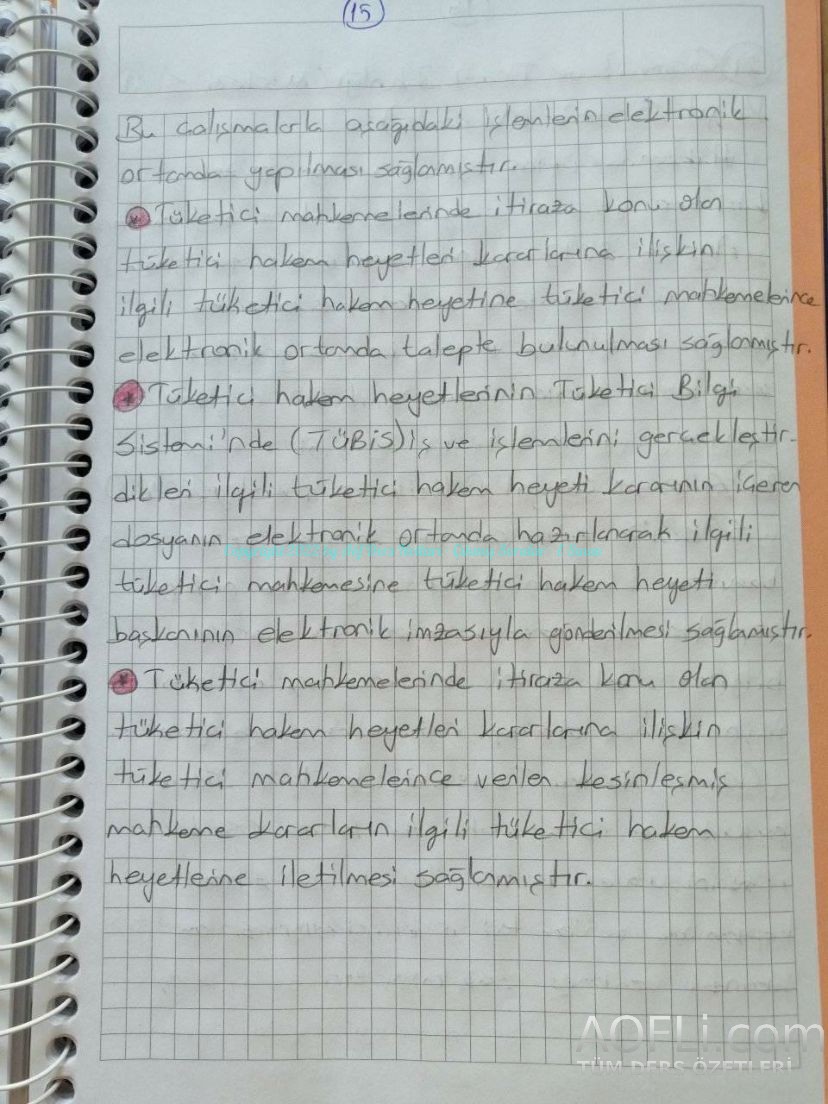 15
Bu çalışmalarla aşağıdaki işlemlerin elektronik
ortamda yapılması sağlanmıştır.
* Tüketici mahkemelerinde itiraza konu olan
tüketici hakem heyetleri kararlarına ilişkin
ilgili tüketici hakem heyetine tüketici mahkemelerince
elektronik ortamda talepte bulunulması sağlanmıştır.
* Tüketici hakem heyetlerinin Tüketici Bilgi
Sistemi'nde (TÜBİS) iş ve işlemlerini gerçekleştir-
dikleri ilgili tüketici hakem heyeti kararının içeren
dosyanın elektronik ortamda hazırlanarak ilgili
tüketici mahkemesine tüketici hakem heyeti
başkanının elektronik imzasıyla gönderilmesi sağlanmıştır.
* Tüketici mahkemelerinde itiraza konu olan
tüketici hakem heyetleri kararlarına ilişkin
tüketici mahkemelerince verilen kesinleşmiş
mahkeme kararların ilgili tüketici hakem
heyetlerine iletilmesi sağlanmıştır.
AOFLi.com
TÜM DERS ÖZETLERİ